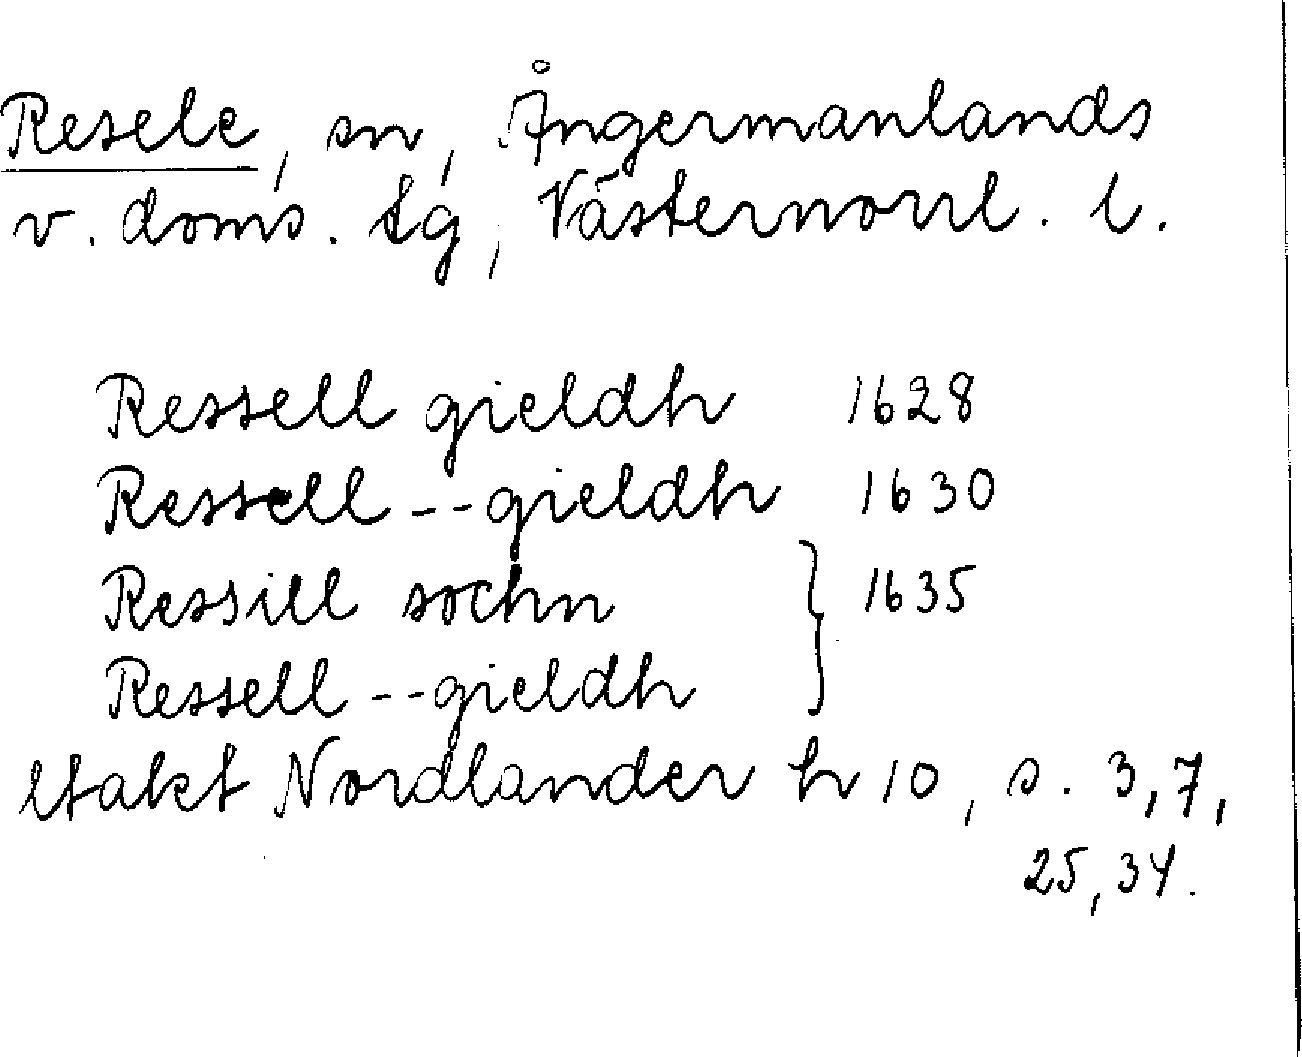 Resele, sn, Ångermanlands
v. doms. tg, Västernorrl. l.
Ressell gieldh 1628
Ressell -- gieldh 1630
Ressill sochn } 1635
Ressell -- gieldh
Nordlander h 10, s. 3, 7,
25, 34.